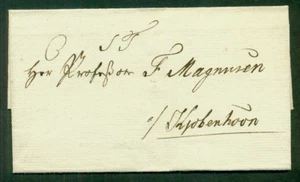 S T
Her Profeßor F Magnusen
a/ Kjobenhavn